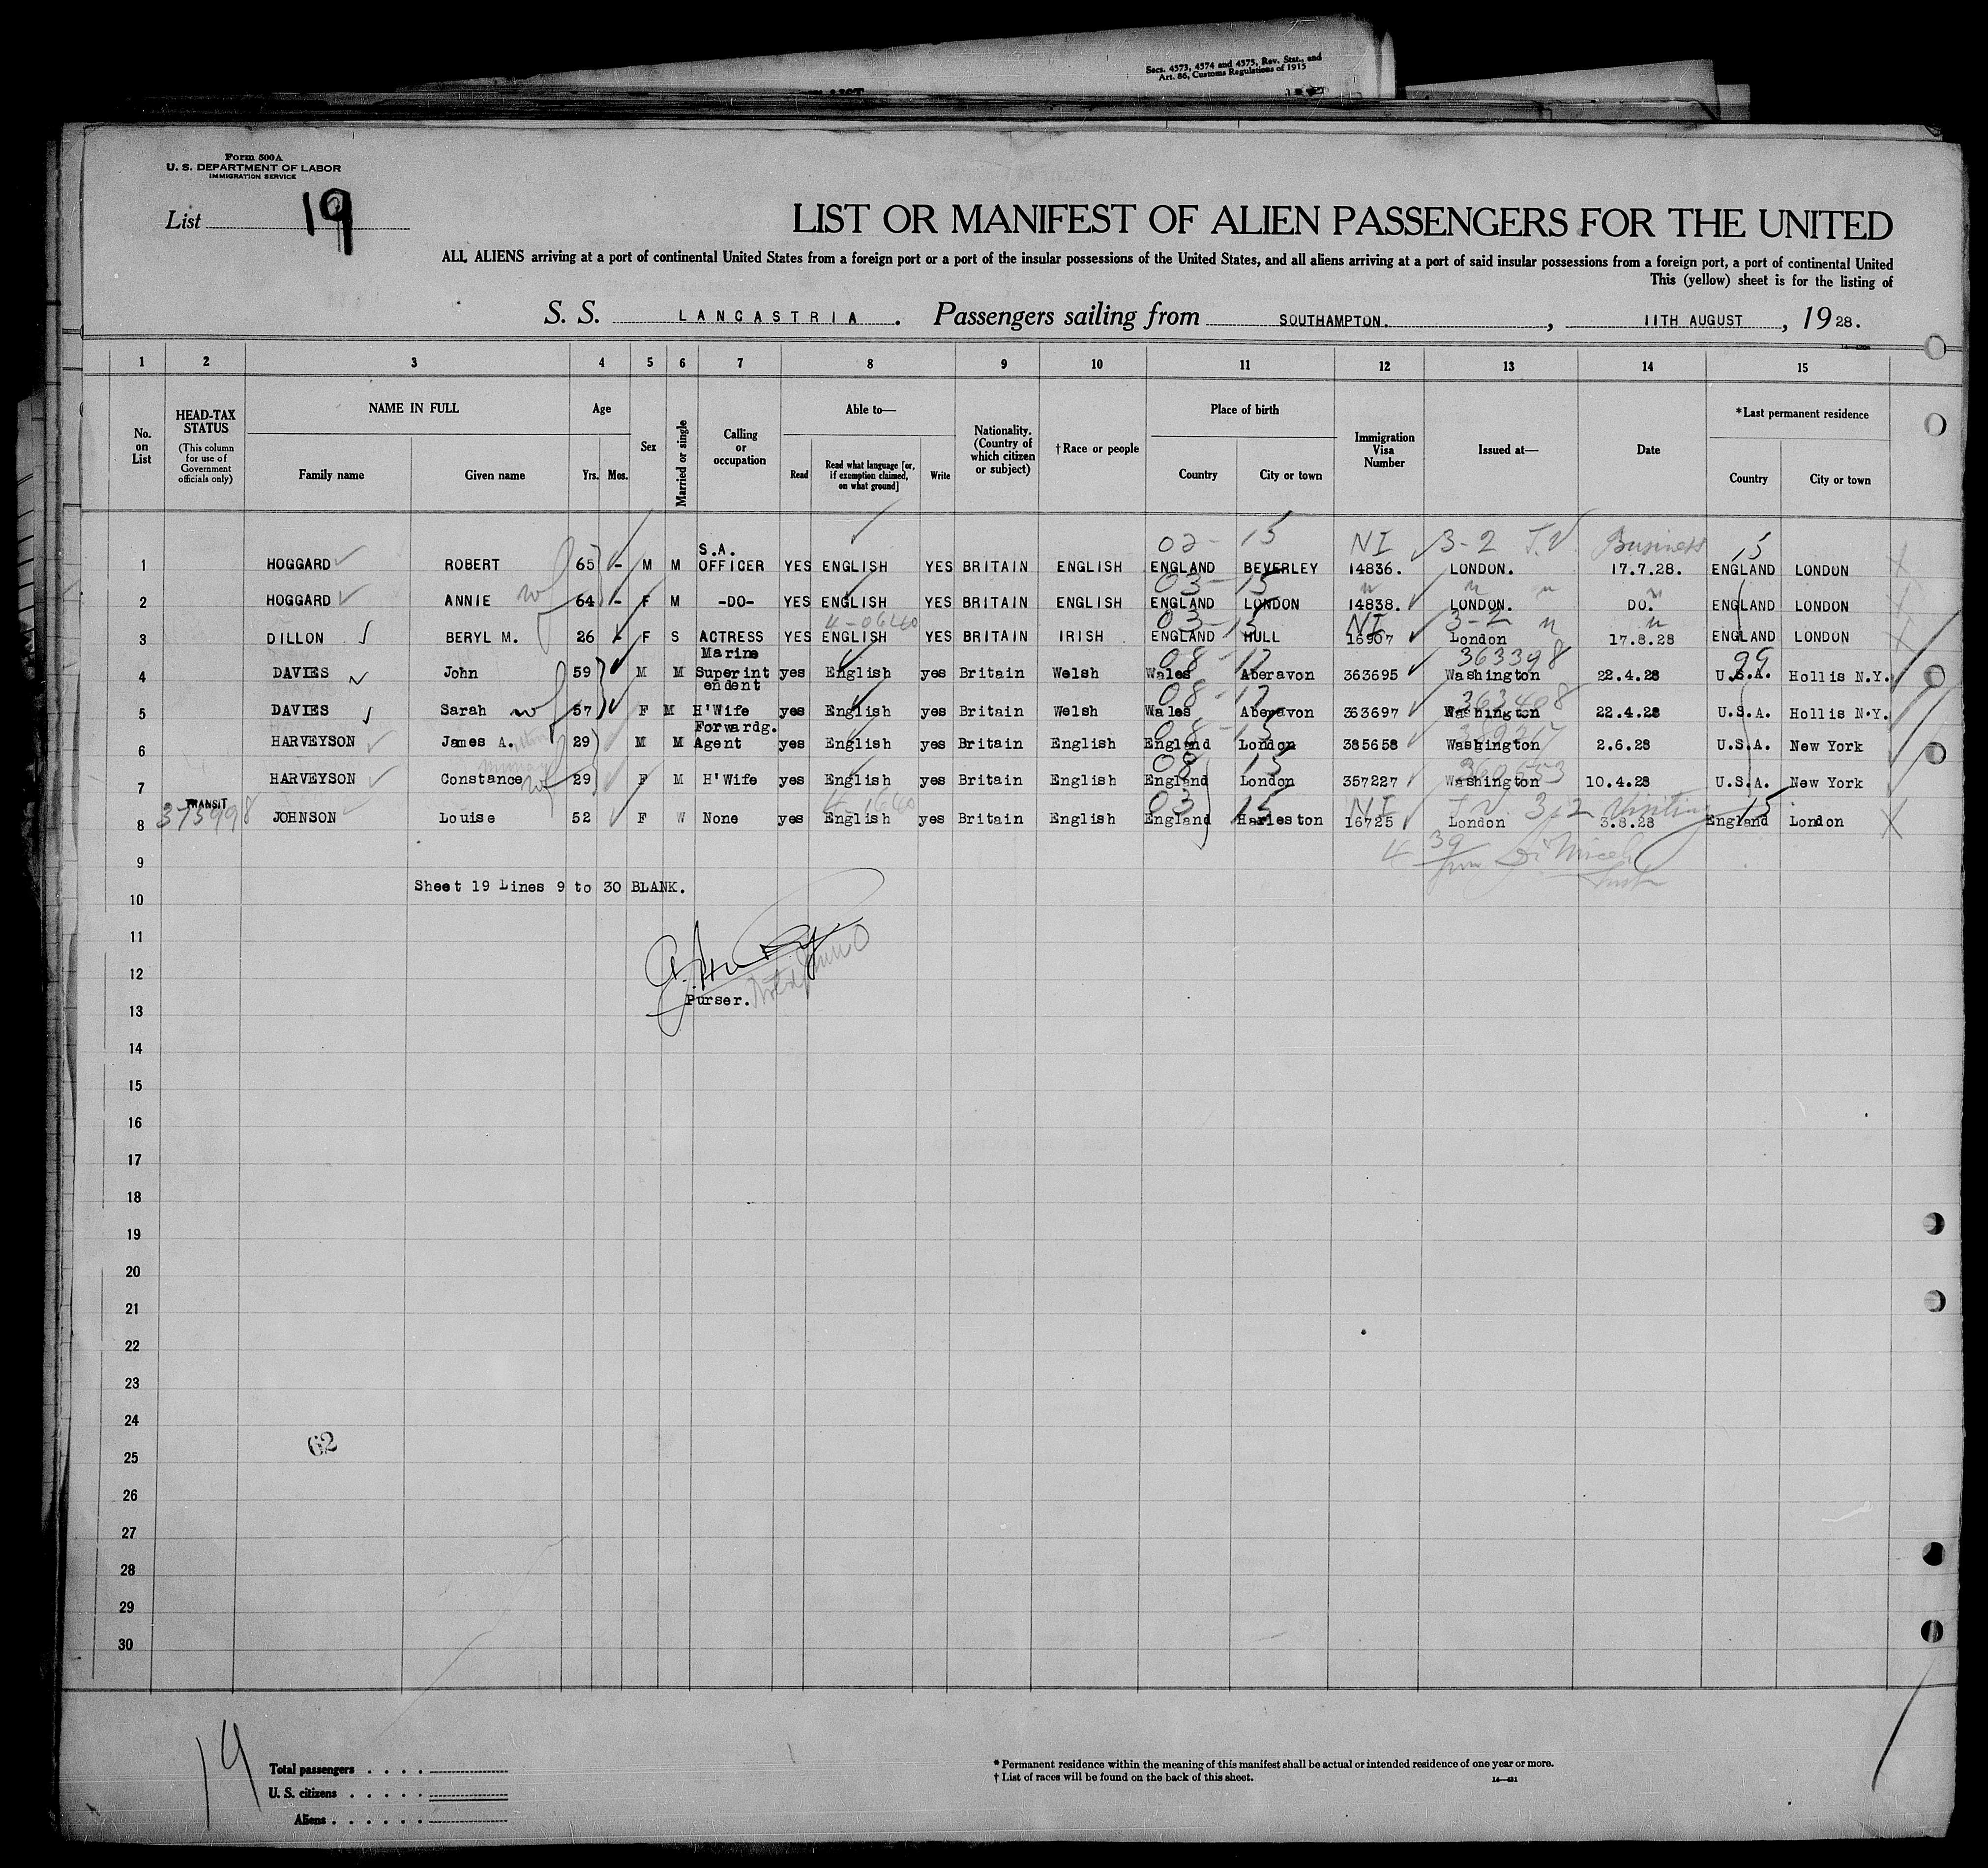 Secs. 4573, 4574 and 4575, Rev. Stat., and
Art. 86, Customs Regulations of 1915
Form 500A
U. S. DEPARTMENT OF LABOR
IMMIGRATION SERVICE
List 19
LIST OR MANIFEST OF ALIEN PASSENGERS FOR THE UNITED
ALL ALIENS arriving at a port of continental United States from a foreign port or a port of the insular possessions of the United States, and all aliens arriving at a port of said insular possessions from a foreign port, a port of continental United
This (yellow) sheet is for the listing of
S. S. LANCASTRIA. Passengers sailing from SOUTHAMPTON. , 11TH AUGUST , 19 28.
1 2 3 4 5 6 7 8 9 10 11 12 13 14 15
No. on List
HEAD-TAX STATUS
(This column for use of Government officials only)
NAME IN FULL
Family name Given name
Age
Yrs. Mos.
Sex
Married or single
Calling or occupation
Able to—
Read
Read what language [or, if exemption claimed, on what ground]
Write
Nationality. (Country of which citizen or subject)
†Race or people
Place of birth
Country City or town
Immigration Visa Number
Issued at—
Date
*Last permanent residence
Country City or town
02- 15 NI 3-2 T.V. Business 15
1 HOGGARD ROBERT 65 - M M S.A. OFFICER YES ENGLISH YES BRITAIN ENGLISH ENGLAND BEVERLEY 14836. LONDON. 17.7.28. ENGLAND LONDON
03-15
2 HOGGARD ANNIE wf 64 - F M -DO- YES ENGLISH YES BRITAIN ENGLISH ENGLAND LONDON 14838. LONDON. DO. ENGLAND LONDON
03-15 NI 3-2
3 DILLON BERYL M. 26 - F S ACTRESS YES ENGLISH YES BRITAIN IRISH ENGLAND HULL 16907 London 17.8.28 ENGLAND LONDON
08-17 363398 99
4 DAVIES John 59 M M Marine Superintendent yes English yes Britain Welsh Wales Aberavon 363695 Washington 22.4.28 U.S.A. Hollis N.Y.
08-17 363408
5 DAVIES Sarah wf 57 F M H'Wife yes English yes Britain Welsh Wales Aberavon 363697 Washington 22.4.28 U.S.A. Hollis N.Y.
08-15
6 HARVEYSON James A. 29 M M Forwardg. Agent yes English yes Britain English England London 385658 Washington 2.6.28 U.S.A. New York
08 15 360553
7 HARVEYSON Constance wf 29 F M H'Wife yes English yes Britain English England London 357227 Washington 10.4.28 U.S.A. New York
TRANSIT
375998 03 15 NI T.V. 3.2 Visiting 15
8 JOHNSON Louise 52 F W None yes English yes Britain English England Harleston 16725 London 3.8.28 England London
9
Sheet 19 Lines 9 to 30 BLANK.
10
11
12
Purser.
13
14
15
16
17
18
19
20
21
22
23
24
62
25
26
27
28
29
30
19
Total passengers
U. S. citizens
Aliens
* Permanent residence within the meaning of this manifest shall be actual or intended residence of one year or more.
† List of races will be found on the back of this sheet.
14—421